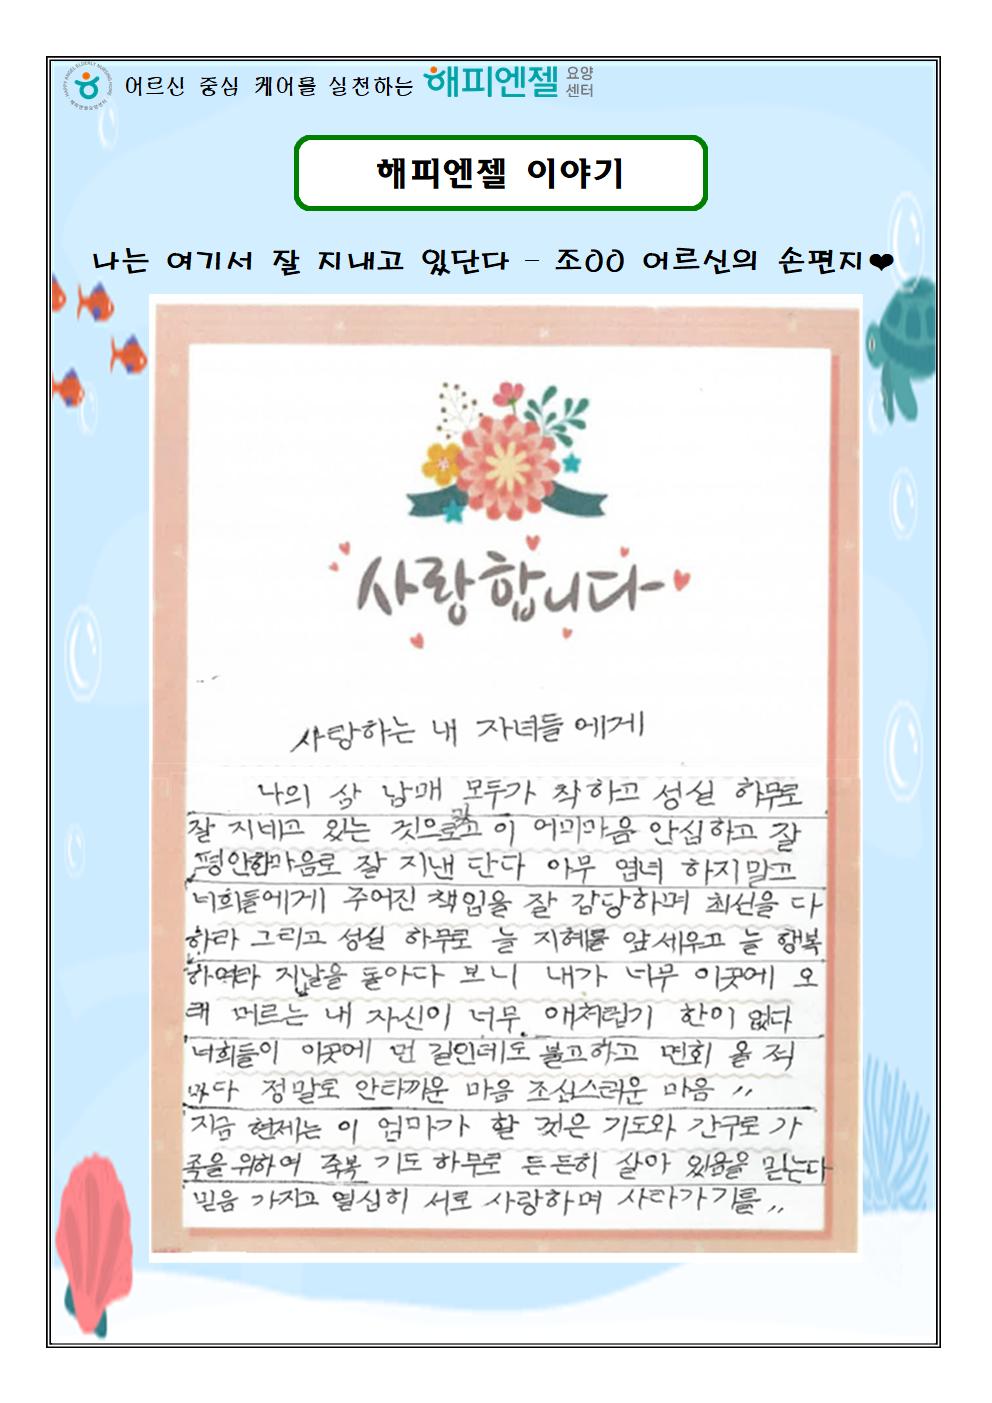 어르신 중심 케어를 실천하는 해피엔젤 요양센터
해피엔젤 이야기
나는 여기서 잘 지내고 있단다 - 조OO 어르신의 손편지❤
사랑합니다
사랑하는 내 자녀들에게
나의 삼 남매 모두가 착하고 성실 하무로
잘 지내고 있는 것으로 이 어미마음 안심하고 잘
평안한마음로 잘 지낸 단다 아무 염녀 하지말고
너희들에게 주어진 책임을 잘 감당하며 최선을 다
하라 그리고 성실 하무로 늘 지혜를 앞세우고 늘 행복
하여라 지난날을 돌아다 보니 내가 너무 이곳에 오
래 머르는 내 자신이 너무 애처럽기 한이 없다
너희들이 이곳에 먼 길인데도 불고하고 면회 올 적
마다 정말로 안타까운 마음 조심스러운 마음 〃
지금 현재는 이 엄마가 할 것은 기도와 간구로 가
족을 위하여 축복 기도 하무로 든든히 살아 있음을 믿는다
믿음 가지고 열심히 서로 사랑하며 사라가기를 〃